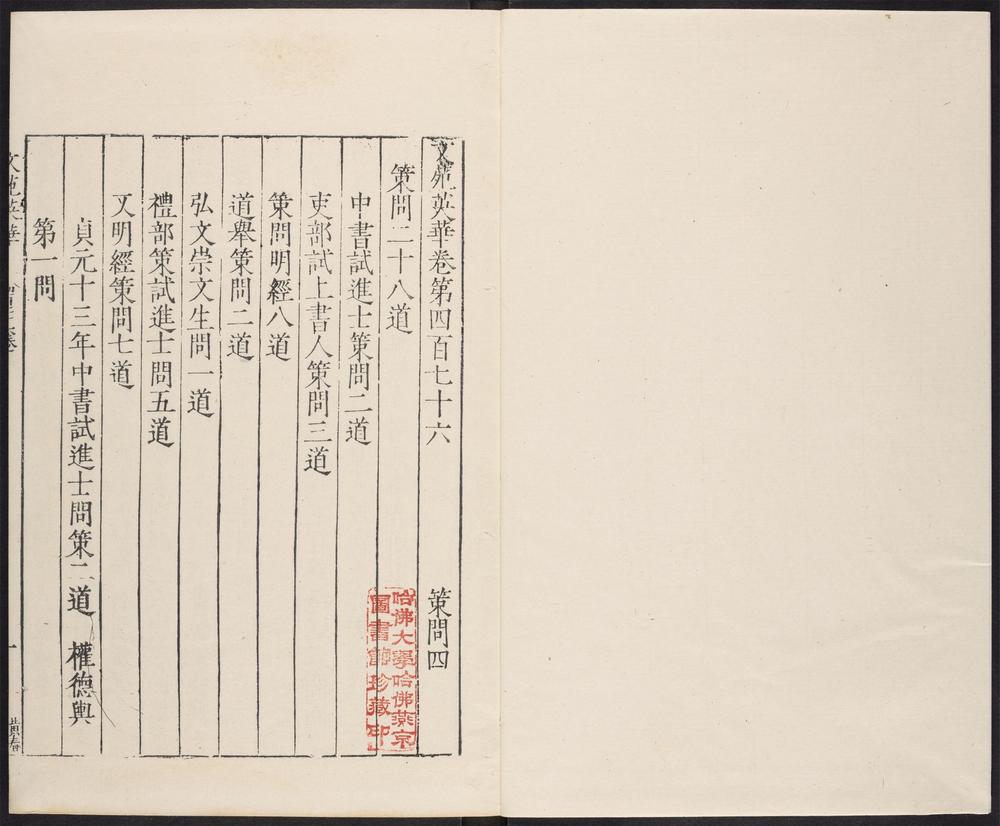 文苑英華卷第四百七十六
策問四
策問二十八道
中書試進士策問二道
吏部試上書人策問三道
策問明經八道
道舉策問二道
弘文崇文生問一道
禮部策試進士問五道
又明經策問七道
貞元十三年中書試進士問策二道 權德輿
第一問
文苑英華
一
黃春
哈佛大學哈佛燕京
圖書館珍藏印